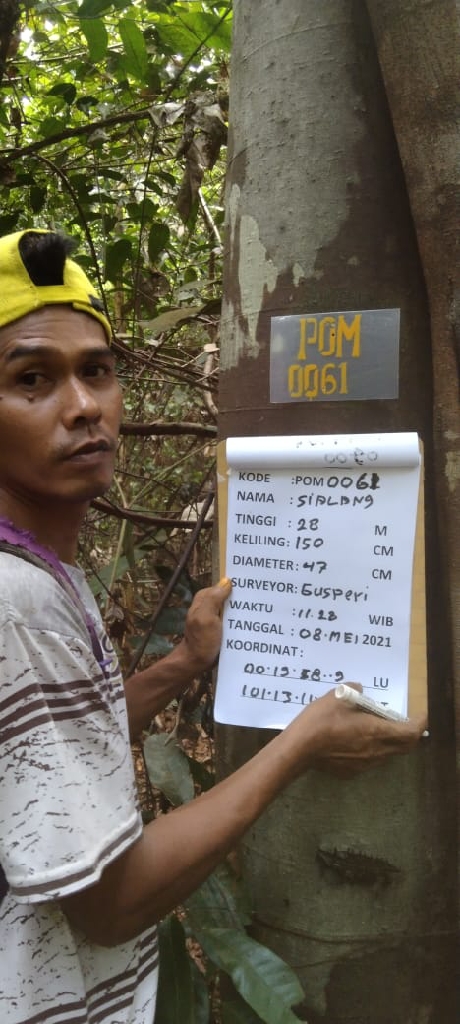 POM
0061
KODE :POM 0061
NAMA : SIALANG
TINGGI : 28 M
KELILING: 150 CM
DIAMETER: 47 CM
SURVEYOR: Gusperi
WAKTU : 11.28 WIB
TANGGAL : 08. MEI 2021
KOORDINAT :
00.19.58..9 LU
101.13.11